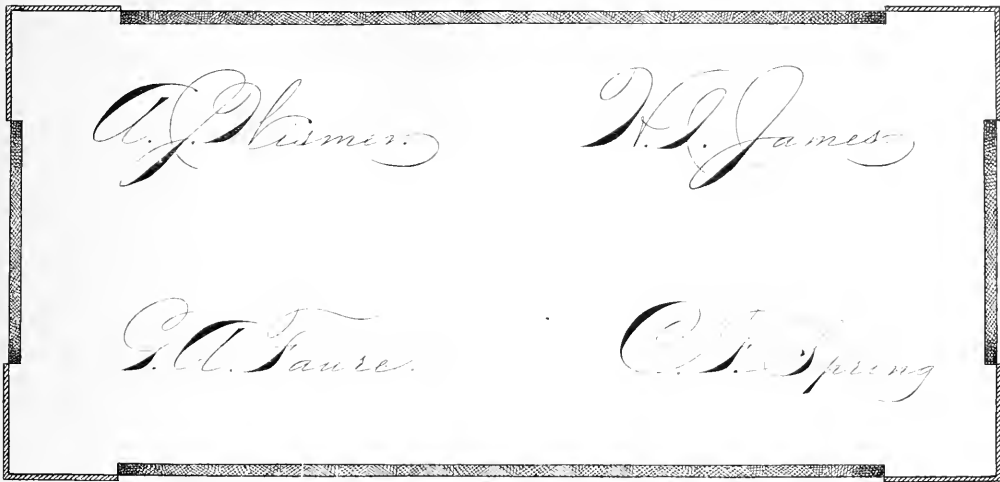 A. J. Wismer.
H. T. James
G. A. Faure.
C. F. Spring